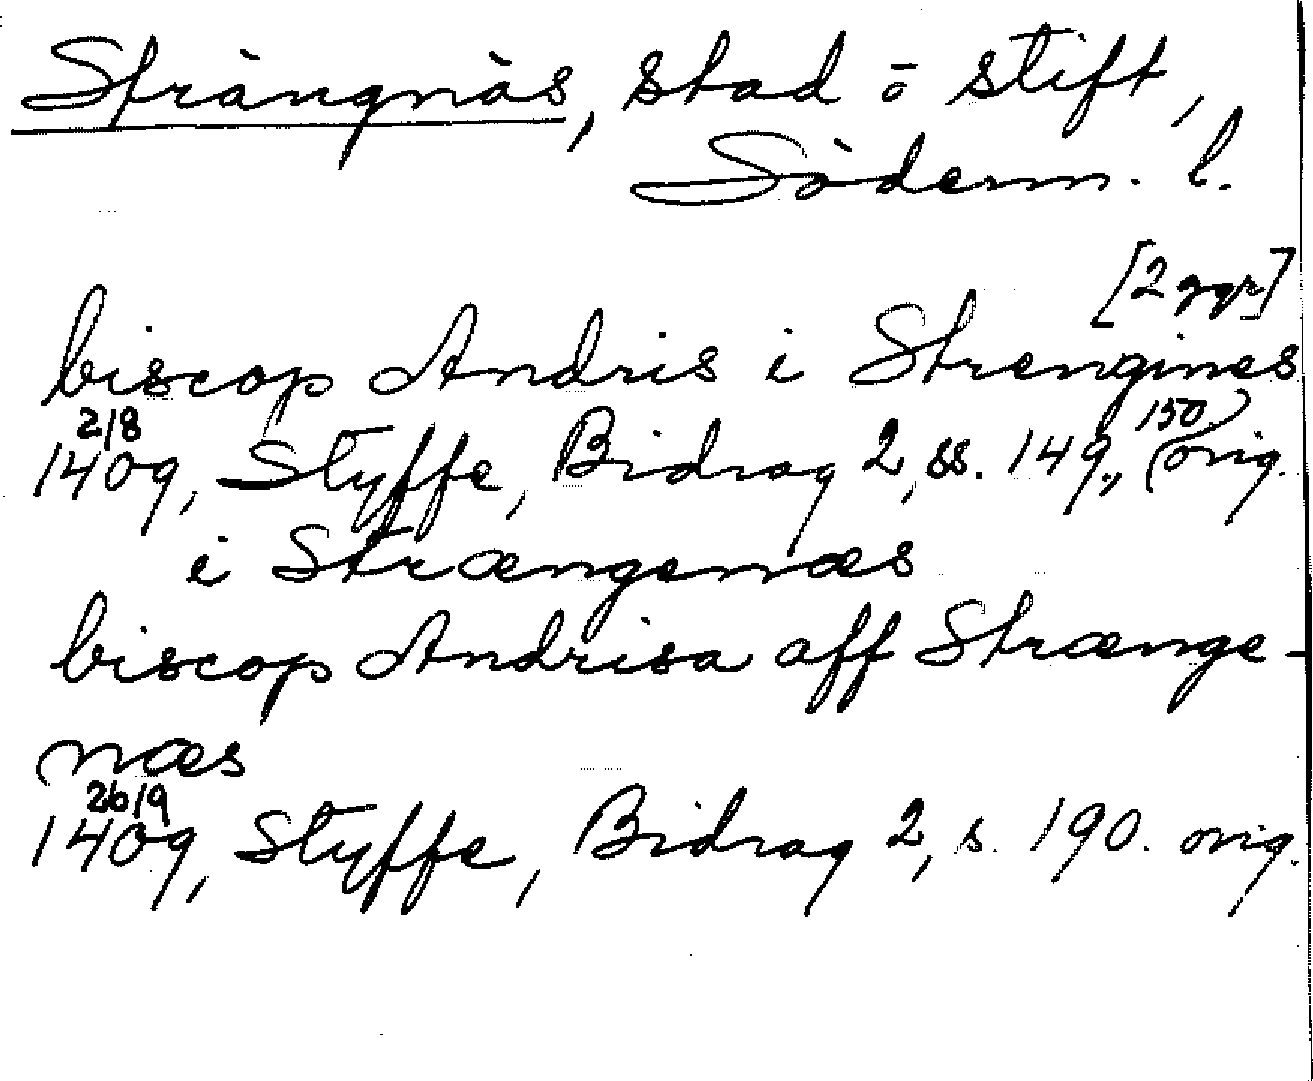 Strängnäs, stad o stift,
Söderm. l.
[2 ggr]
biscop Andris i Strengines
2/8 150)
1409, Styffe, Bidrag 2, ss. 149,, (orig.
i Strængenæs
biscop Andrisa aff Strænge-
næs
26/9
1409, Styffe, Bidrag 2, s. 190. orig.